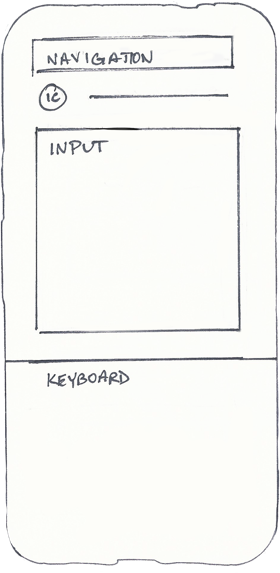 NAVIGATION
ić
INPUT
KEYBOARD